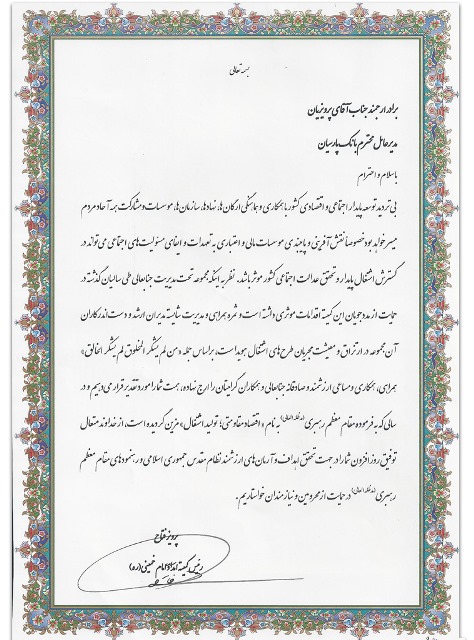 بسمه تعالی
برادر ارجمند جناب آقای پرویزیان
مدیرعامل محترم بانک پارسیان
با سلام و احترام
بی تردید توسعه پایدار اجتماعی و اقتصادی کشور با همکاری و هماهنگی ارکان ها، نهادها، سازمان ها، موسسات و مشارکت همه آحاد مردم
میسر خواهد بود خصوصاً نقش آفرینی و پایبندی موسسات مالی و اعتباری به تعهدات و ایفای مسئولیت های اجتماعی می تواند در
گسترش اشتغال پایدار و تحقق عدالت اجتماعی کشور موثر باشد. نظر به اینکه مجموعه تحت مدیریت جنابعالی طی سالیان گذشته در
حمایت از مددجویان این کمیته اقدامات موثری داشته است و ثمره همراهی و مدیریت شایسته مدیران ارشد و دست اندرکاران
آن مجموعه در ارتزاق و معیشت مجریان طرح های اشتغال هویداست، بر اساس جمله «من لم یشکر المخلوق لم یشکر الخالق»
همراهی، همکاری و مساعی ارزشمند و صادقانه جنابعالی و همکاران گرامیتان را ارج نهاده، همت شما را مورد تقدیر قرار می دهیم و در
سالی که به فرموده مقام معظم رهبری (مدظله العالی) به نام «اقتصاد مقاومتی؛ تولید اشتغال» مزین گردیده است، از خداوند متعال
توفیق روزافزون شما را در جهت تحقق اهداف و آرمان های ارزشمند نظام مقدس جمهوری اسلامی و رهنمودهای مقام معظم
رهبری (مدظله العالی) در حمایت از محرومین و نیازمندان خواستاریم.
پرویز فتاح
رئیس کمیته امداد امام خمینی (ره)